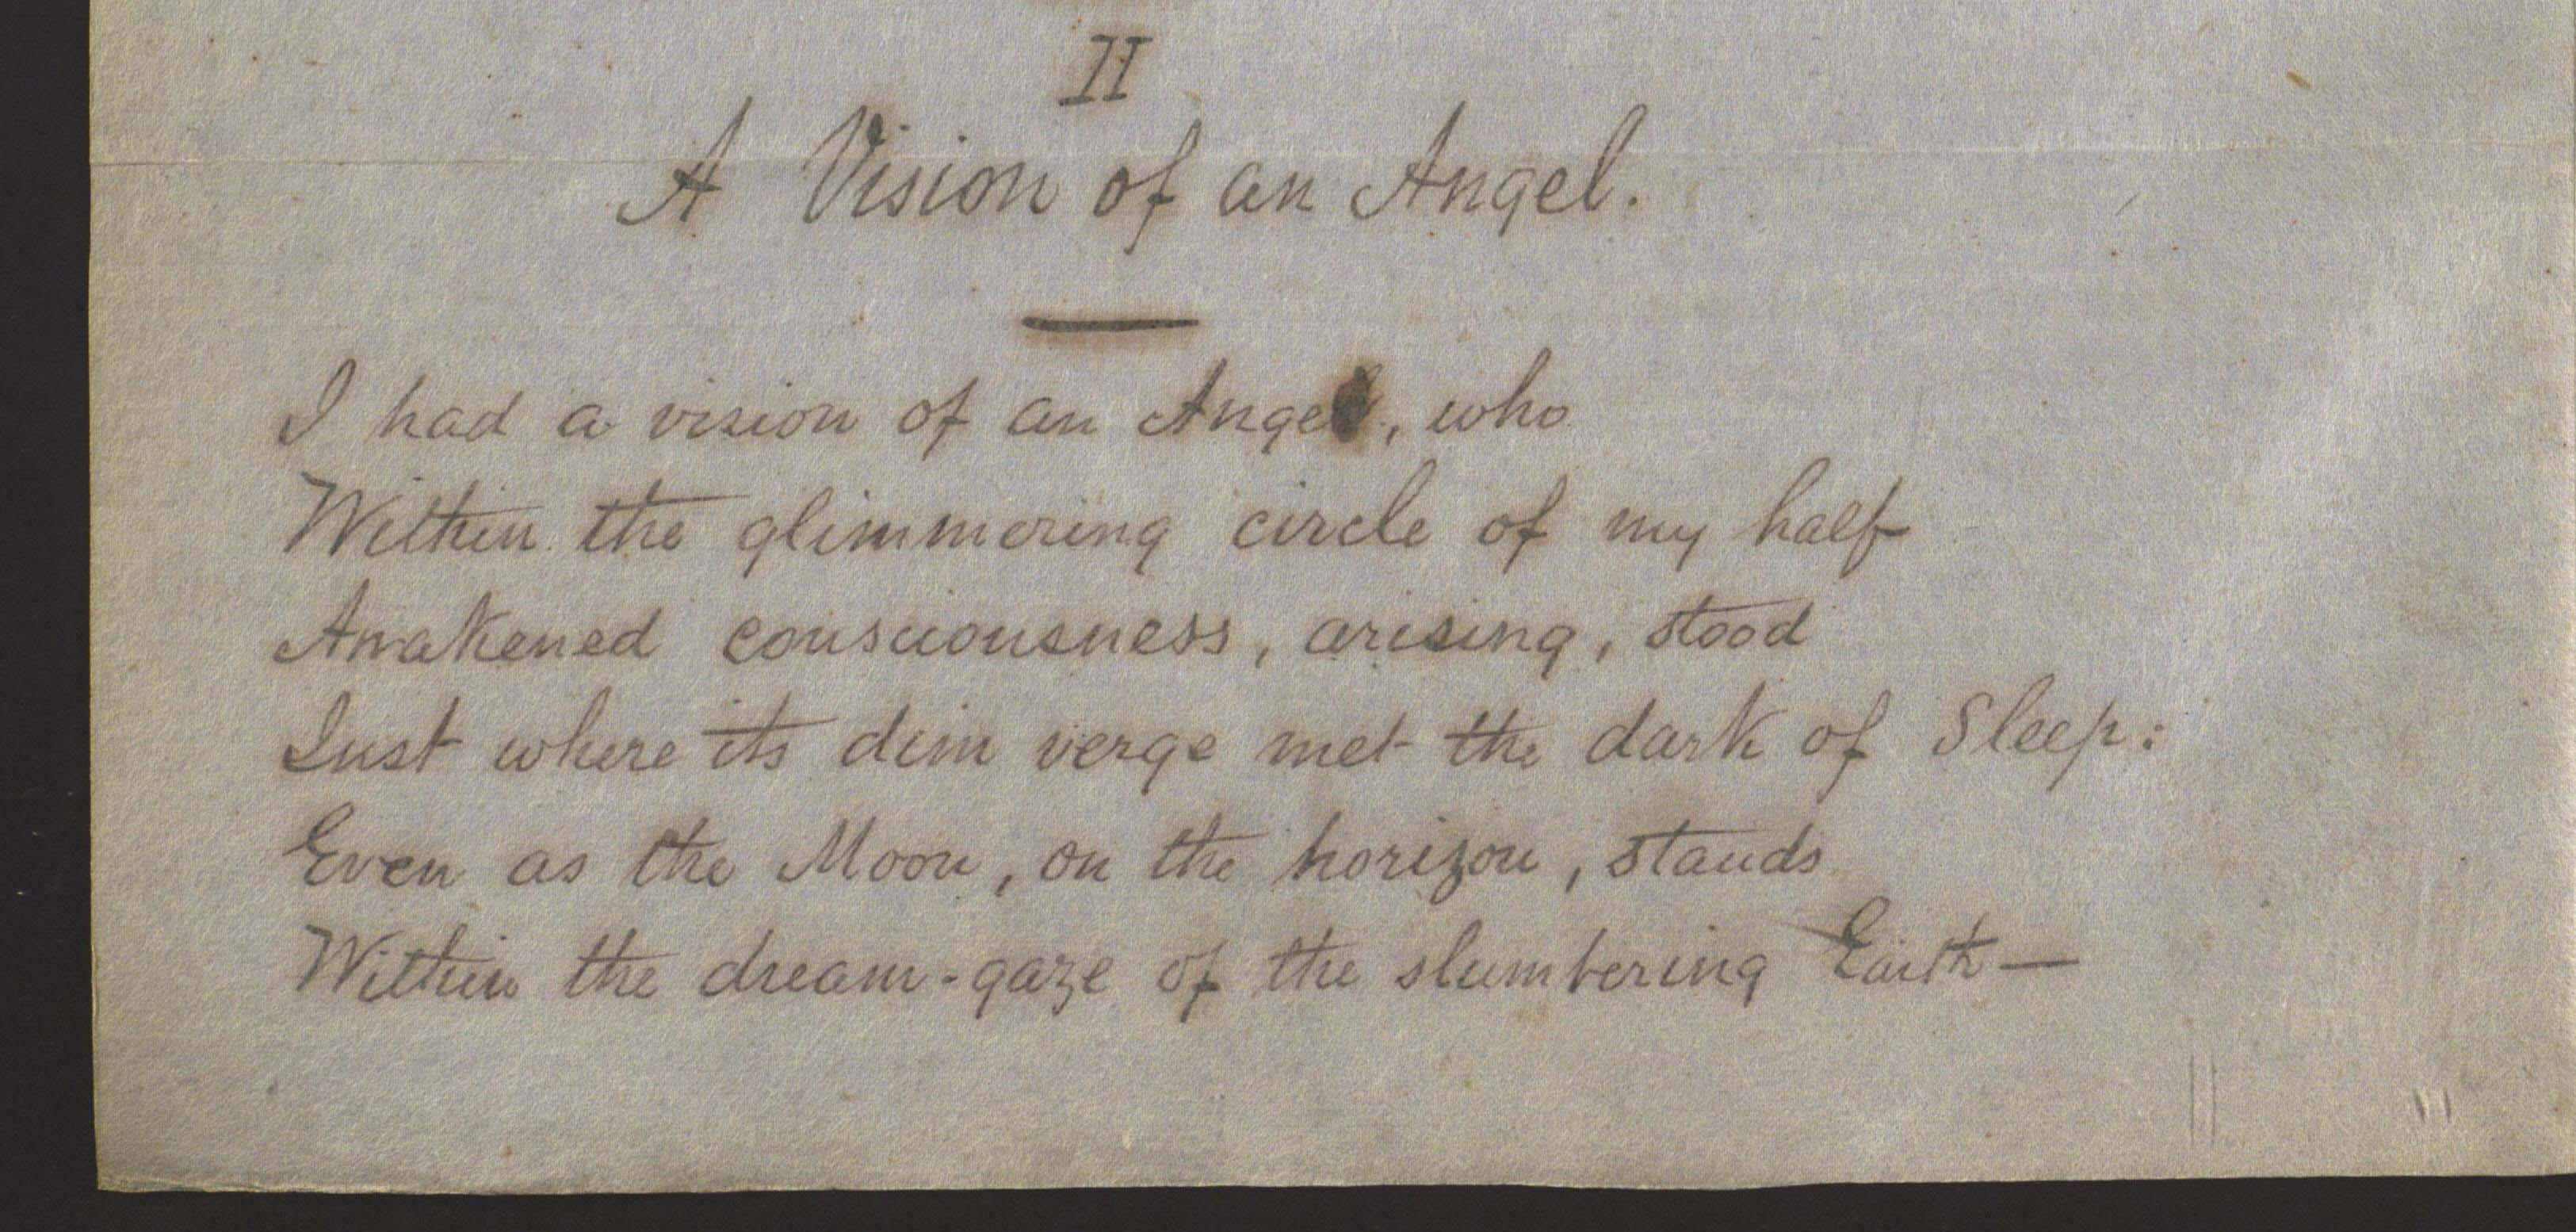 II
A Vision of an Angel.
I had a vision of an Angel, who
Within the glimmering circle of my half
Awakened consciousness, arising, stood
Just where its dim verge met the dark of Sleep:
Even as the Moon, on the horizon, stands
Within the dream-gaze of the slumbering Earth—